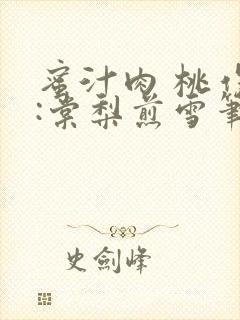 蜜汁肉桃作
:棠梨煎雪筆
史劍峰